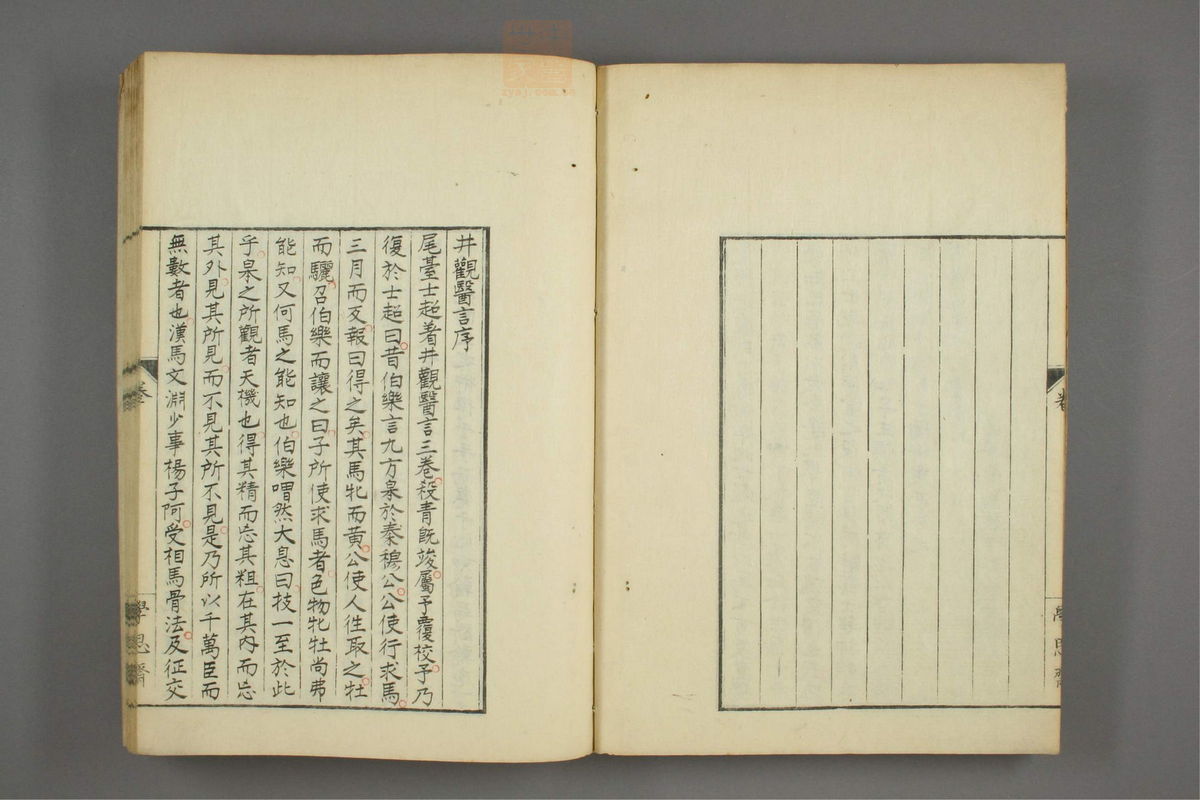 井觀醫言序
尾臺士超著井觀醫言三卷殺青旣竣屬予覆校予乃
復於士超曰昔伯樂言九方臯於秦穆公公使行求馬
三月而反報曰得之矣其馬牝而黃公使人往取之牡
而驪召伯樂而讓之曰子所使求馬者色物牝牡尚弗
能知又何馬之能知也伯樂喟然大息曰技一至於此
乎臯之所觀者天機也得其精而忘其粗在其內而忘
其外見其所見而不見其所不見是乃所以千萬臣而
無數者也漢馬文淵少事楊子阿受相馬骨法及征交
卷
學思齋